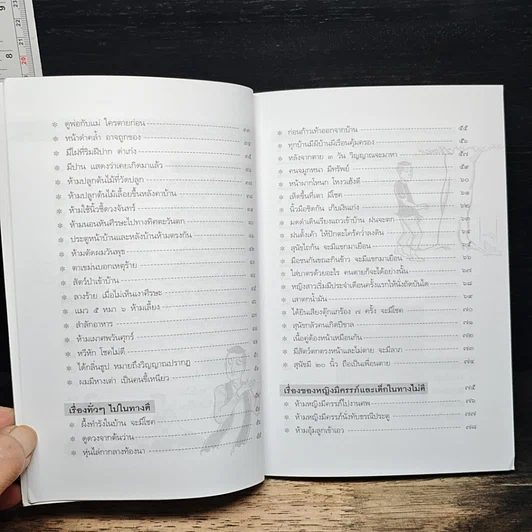 ดูพ่อกับแม่ ใครตายก่อน
หน้าดำคล้ำ อาจถูกของ
มีไฝที่ริมฝีปาก ด่าเก่ง
มีปาน แสดงว่าเคยเกิดมาแล้ว
ห้ามปลูกต้นไม้ที่วัดปลูก
ห้ามปลูกต้นไม้เลื้อยขึ้นหลังคาบ้าน
ห้ามใช้นิ้วชี้ดวงจันทร์
ห้ามนอนหันศีรษะไปทางทิศตะวันตก
ประตูหน้าบ้านและหลังบ้านห้ามตรงกัน
ห้ามตัดผมวันพุธ
ตาเขม่นบอกเหตุร้าย
สัตว์ป่าเข้าบ้าน
ลางร้าย เมื่อไม่เห็นเงาศีรษะ
แมว ๕ หมา ๖ ห้ามเลี้ยง
สำลักอาหาร
ห้ามเผาศพวันศุกร์
ทวีทัก โชคไม่ดี
ได้กลิ่นธูป หมายถึงวิญญาณปรากฏ
ผมมีทางเต่า เป็นคนขี้เหนียว
เรื่องทั่วๆ ไปในทางดี
ผึ้งทำรังในบ้าน จะมีโชค
ดูดวงจากต้นว่าน
หุ่นไล่กากลางท้องนา
ก่อนก้าวเท้าออกจากบ้าน ๕๕
ทุกบ้านมีผีบ้านผีเรือนคุ้มครอง ๕๖
หลังจากตาย ๓ วัน วิญญาณจะมาหา ๕๗
คนจมูกหนา มีทรัพย์
หน้าผากโหนก โหงวเฮ้งดี
เห็ดขึ้นที่เตา มีโชค ๖๐
นิ้วมือชิดกัน เก็บเงินเก่ง
มดดำเดินเรียงแถวเข้าบ้าน ฝนจะตก
ฝนตั้งเค้า ให้ปักตะไคร้คว่ำลงดิน
สุนัขไอกัน จะมีแขกมาเยือน
มือชนกันขณะกินข้าว จะมีแขกมาเยือน
ใส่บาตรด้วยอะไร คนตายก็จะได้อย่างนั้น ๖๖
หญิงสาวเริ่มมีประจำเดือนครั้งแรกให้นั่งถัดบันได ๖๘
เสาตกน้ำมัน ๖๙
ได้ยินเสียงตุ๊กแกร้อง ๗ ครั้ง จะมีโชค ๗๐
สุนัขกลัวคนเกิดปีขาล ๗๑
เนื้อคู่ต้องหน้าเหมือนกัน ๗๒
มีสัตว์ตกตรงหน้าและไม่ตาย จะมีลาภ ๗๓
สุนัขมี ๒๐ นิ้ว ถือเป็นเพื่อนตาย ๗๔
เรื่องของหญิงมีครรภ์และเด็กในทางไม่ดี ๗๕
ห้ามหญิงมีครรภ์ไปงานศพ ๗๖
ห้ามหญิงมีครรภ์นั่งทับธรณีประตู ๗๗
ห้ามอุ้มลูกเข้าเอว ๗๘